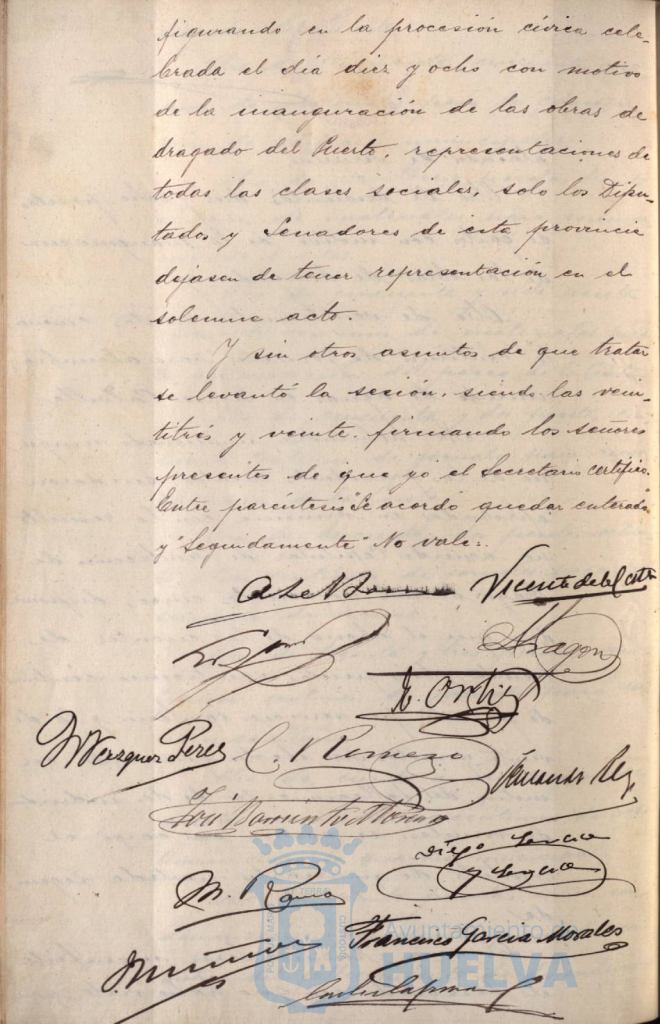 figurando en la procesión cívica cele-
brada el día diez y ocho con motivo
de la inauguración de las obras de
dragado del Puerto, representaciones de
todas las clases sociales, solo los Dipu-
tados y Senadores de esta provincia
dejasen de tener representación en el
solemne acto.
Y sin otros asuntos de que tratar
se levantó la sesión, siendo las vein-
titrés y veinte, firmando los señores
presentes de que yo el Secretario certifico.
Entre paréntesis "Se acordó quedar enterado
y "Seguidamente" No vale.
Vicente de la
Aragon
Ortiz
Vazquez Perez
C. Romero
José Barriento Moreno
Diego
M.
Francisco Garcia Morales
Ayuntamiento
HUELVA